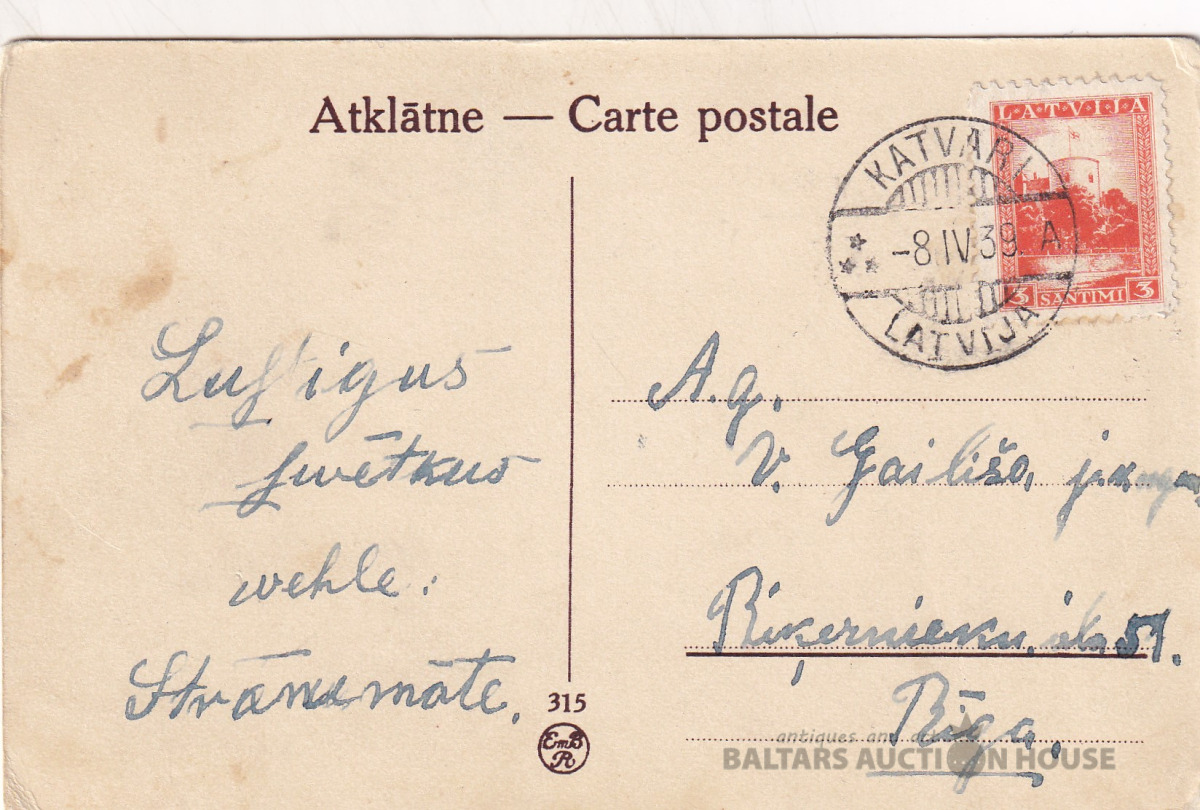 Atklātne — Carte postale
LATVIJA
3 SANTIMI 3
KATVARI
-8 IV 39 A
LATVIJA
Luſtigus
ſwētkus
wehle:
Strānmāte.
A.g.
V. Gailiša, j.k.
Biķernieku ielā 51.
Rīga.
315
EmB
R
antiques and art
BALTARS AUCTION HOUSE